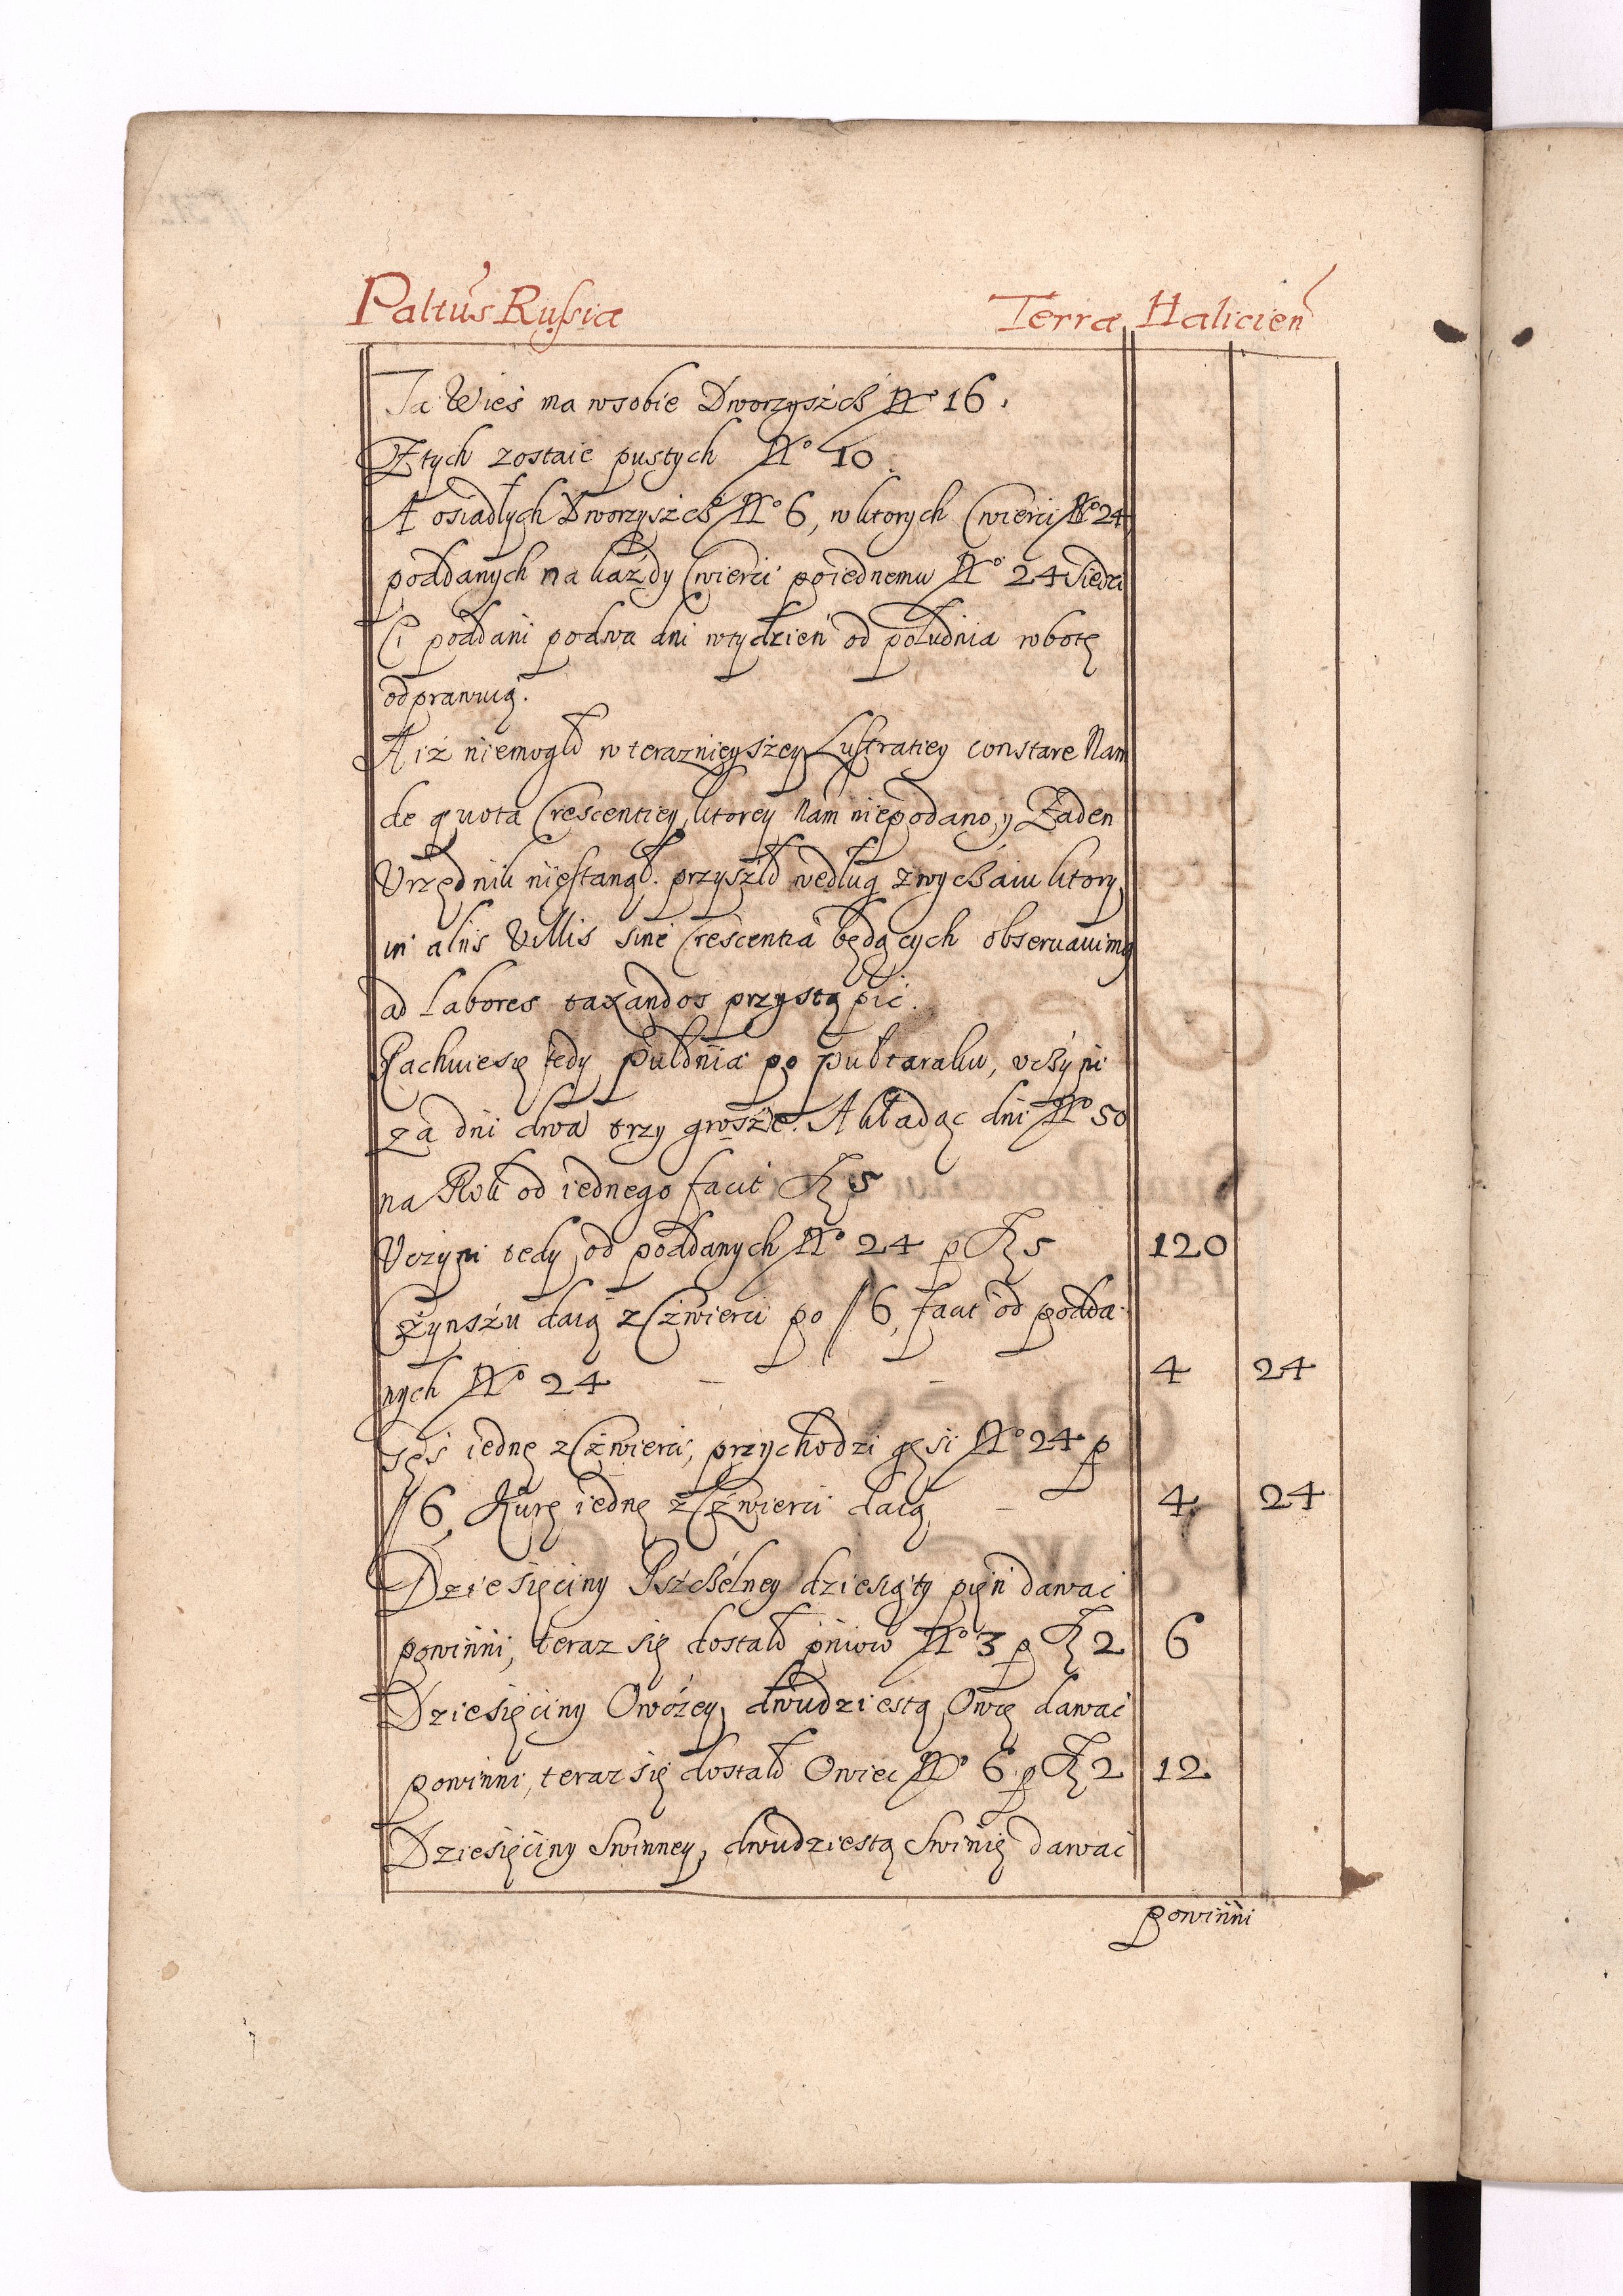 Paltus Russiæ Terræ Halicien
Ta Wieś ma w sobie Dworzyszcz No 16.
Z tych zostaie pustych No 10.
A osiadłych Dworzyszcz No 6, w ktorych Cwierci No 24
poddanych na każdy Cwierci poiednemu No 24 siedzi
Ci poddani po dwa dni w tydzień od południa robotę
odprawuią.
A iż niemogło w teraznieyszey Lustratiey constare Nam
de quota Crescentiey, ktorey Nam niepodano, y Żaden
Vrzędnik niestanął. przyszło według zwyczaiu ktory
in aliis Villis sine Crescentia będących obseruauimus
ad labores taxandos przystąpić.
Rachuiesię tedy pułdnia po pułtoraku, vczyni
za dni dwa trzy grosze. A kładąc dni No 50
na Rok od iednego facit fl 5
Vczyni tedy od poddanych No 24 p fl 5 120
Czynszu daią z Czwierci po ʃ 6, facit od podda-
nych No 24 — — 4 24
Gęś iednę z Czwierci, przychodzi gęsi No 24 p
ʃ 6, Kurę iednę z Czwierci daią, — 4 24
Dziesięciny Pszczelney dziesiąty pień dawać
powinni, teraz się dostało pniow No 3 p fl 2 6
Dziesięciny Owczey, dwudziestą Owcę dawać
powinni, teraz się dostało Owiec No 6 p fl 2 12
Dziesięciny Swinney, dwudziestą Swinię dawać
powinni